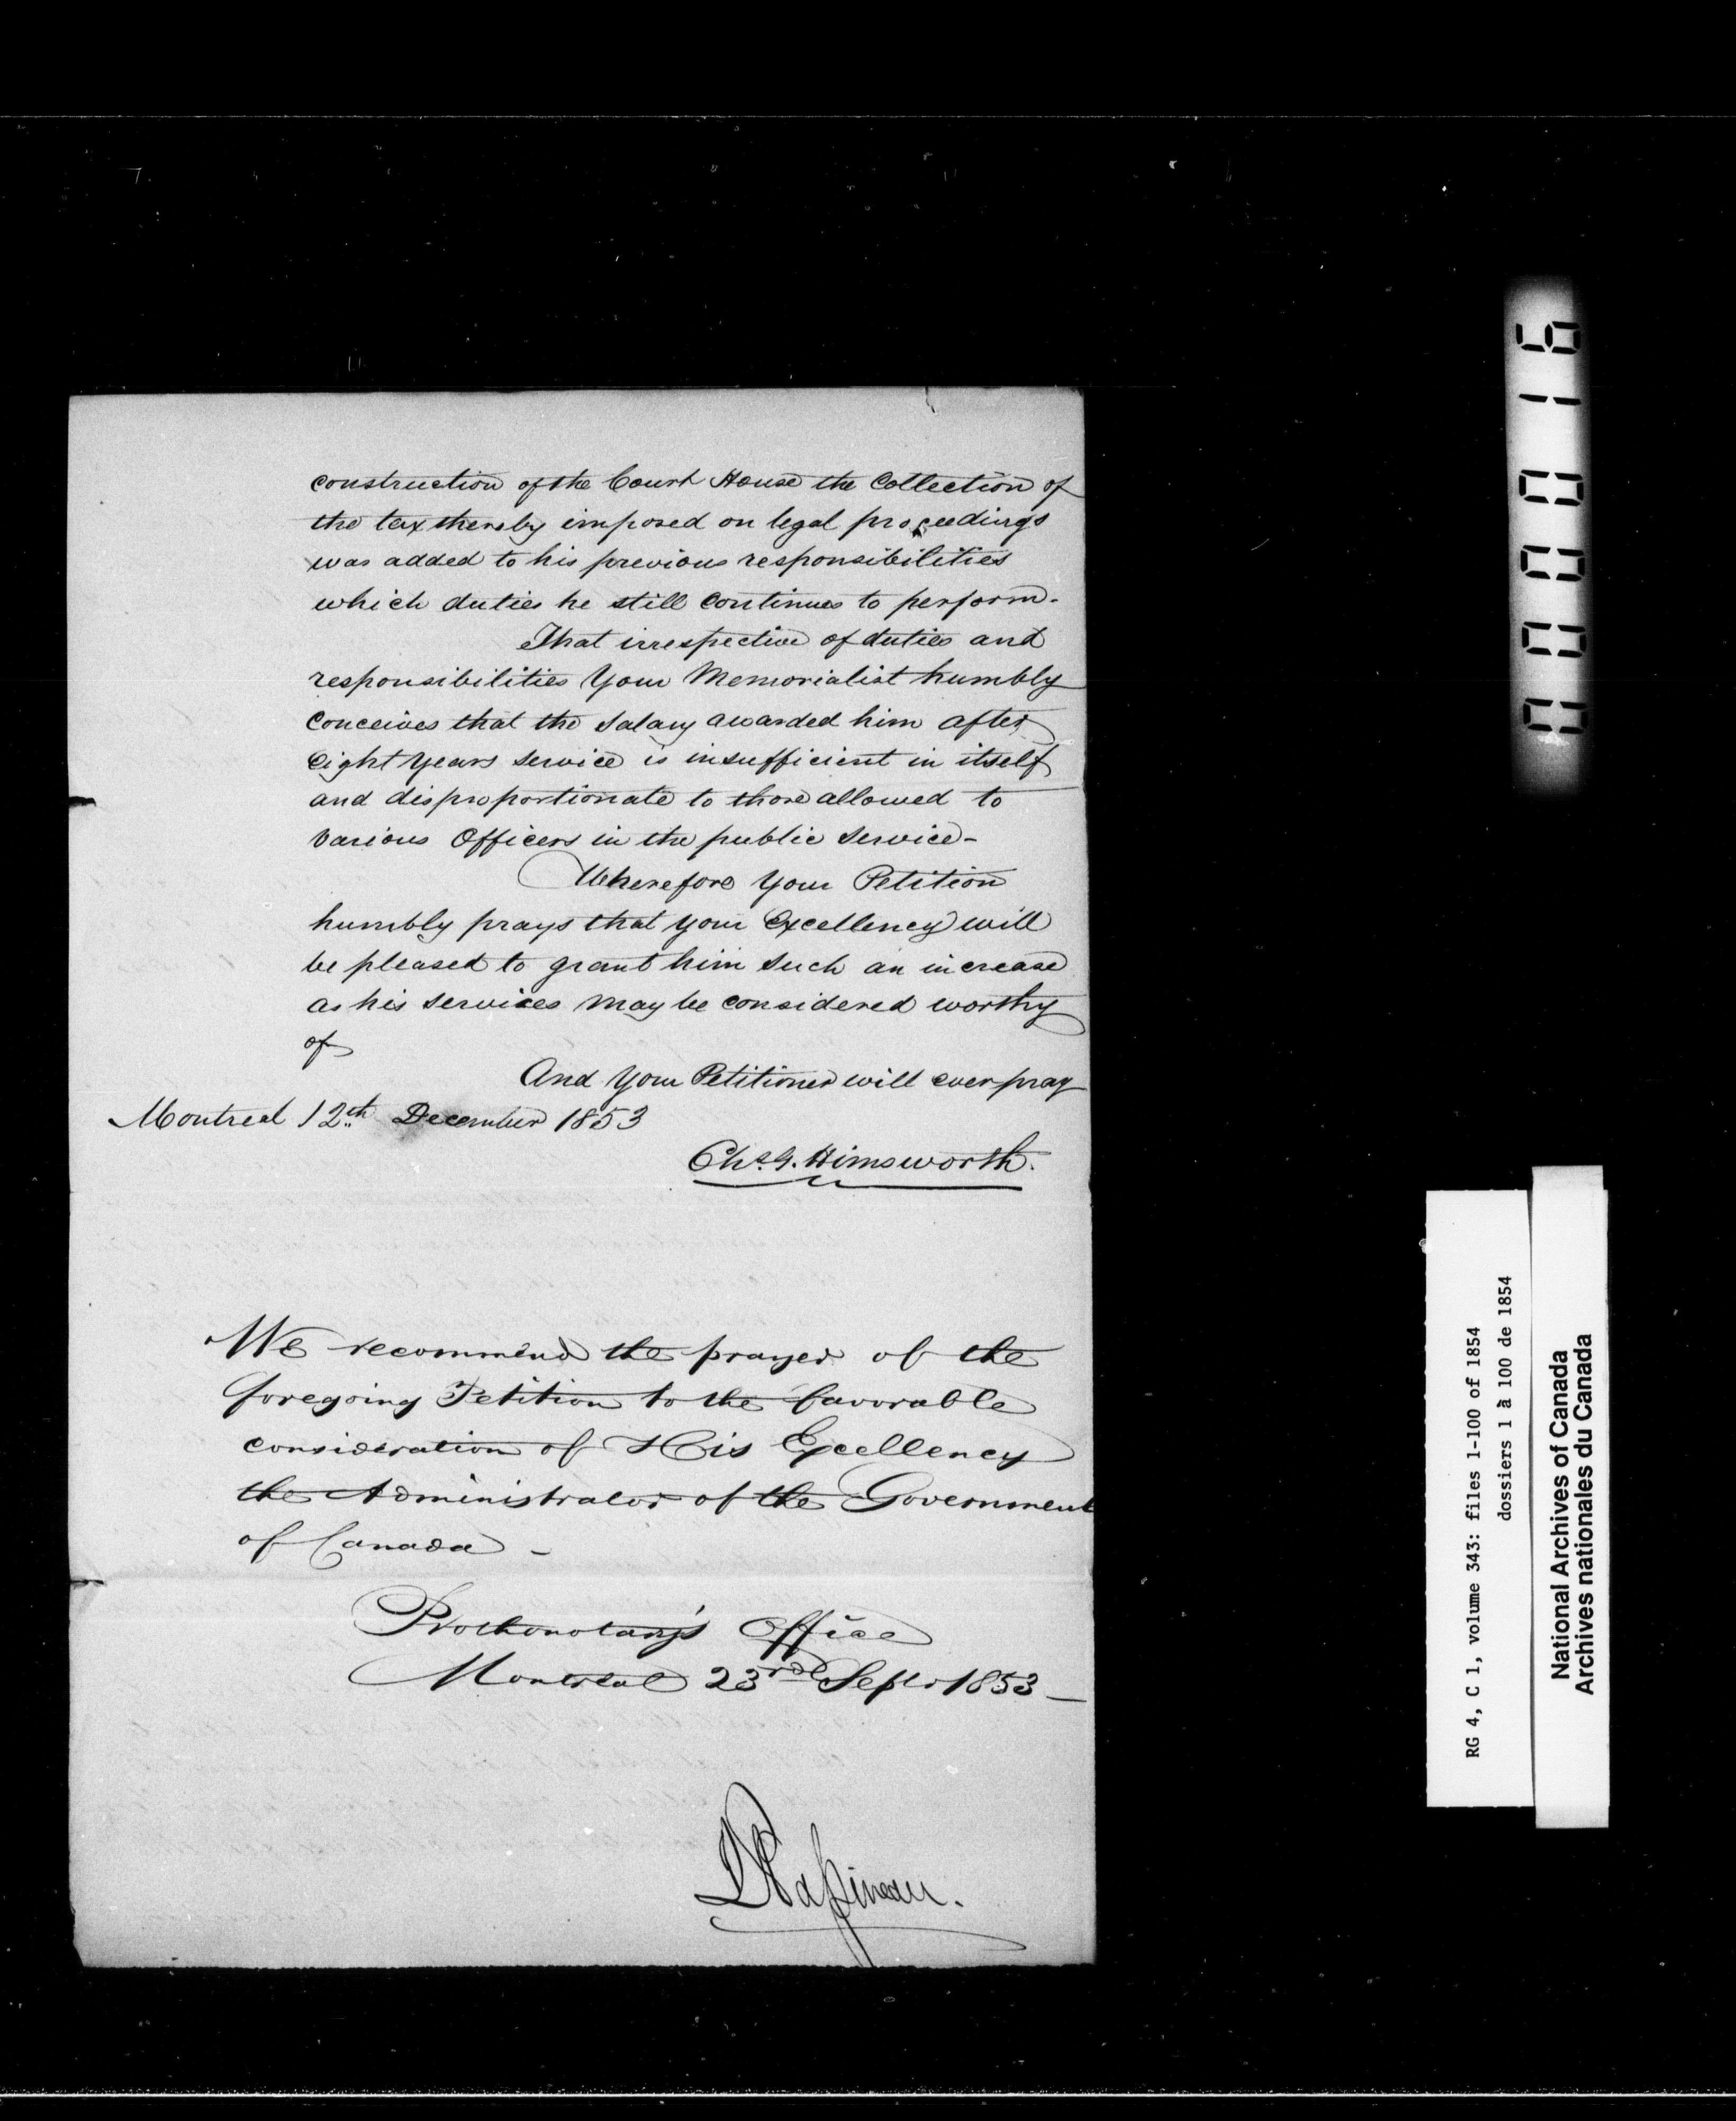 construction of the Court House the Collection of
the tax thereby imposed on legal proceedings
was added to his previous responsibilities
which duties he still continues to perform.
That irrespective of duties and
responsibilities Your Memorialist humbly
conceives that the Salary awarded him after
Eight Years service is insufficient in itself
and disproportionate to those allowed to
various Officers in the public Service-
Wherefore Your Petition
humbly prays that your Excellency will
be pleased to grant him such an increase
as his services may be considered worthy
of
And Your Petitioner will ever pray
Montreal 12th December 1853
Chs G. Himsworth.
We recommend the prayer of the
foregoing Petition to the favorable
consideration of His Excellency
the Administrator of the Government
of Canada -
Prothonotary's Office
Montreal 23rd Septr 1853 -
LJPapineau.
000016
RG 4, C 1, volume 343: files 1-100 of 1854
dossiers 1 à 100 de 1854
National Archives of Canada
Archives nationales du Canada